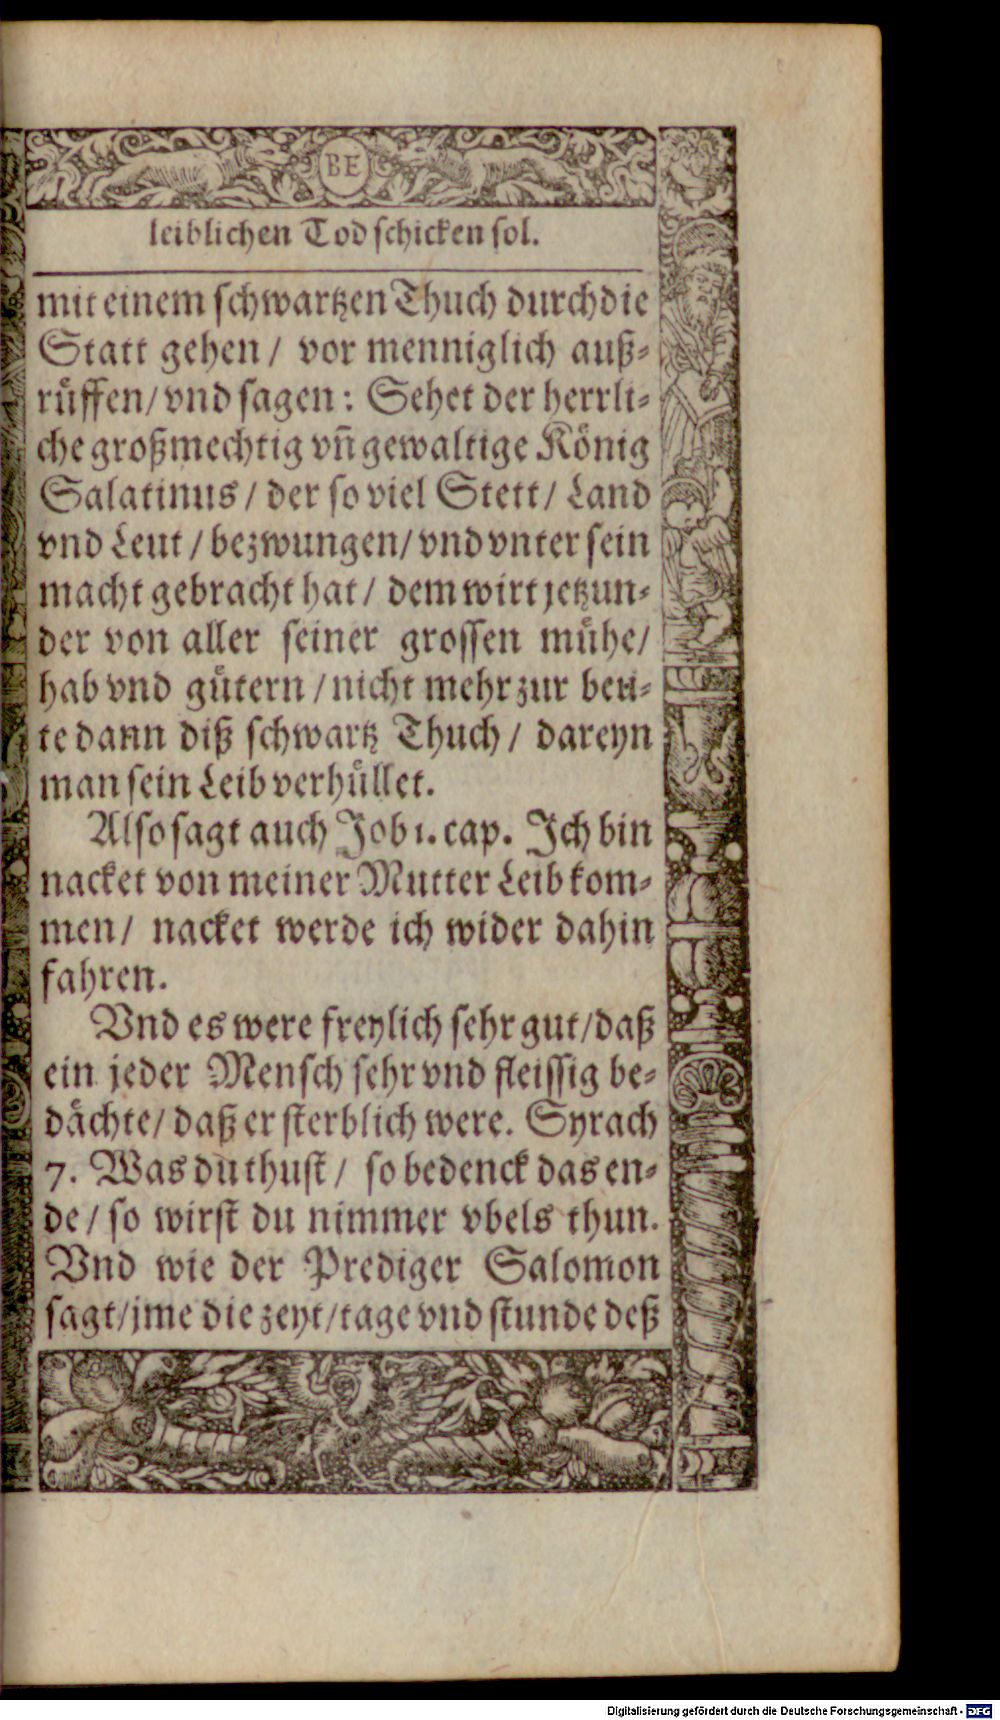 BE
leiblichen Tod schicken sol.
mit einem schwartzen Thuch durch die
Statt gehen / vor menniglich auß⸗
rüffen / vnd sagen : Sehet der herrli⸗
che großmechtig vñ gewaltige König
Salatinus / der so viel Stett / Land
vnd Leut / bezwungen / vnd vnter sein
macht gebracht hat / dem wirt jetzun⸗
der von aller seiner grossen mühe /
hab vnd gütern / nicht mehr zur beu⸗
te dann diß schwartz Thuch / dareyn
man sein Leib verhüllet.
Also sagt auch Job 1. cap. Ich bin
nacket von meiner Mutter Leib kom⸗
men / nacket werde ich wider dahin
fahren.
Vnd es were freylich sehr gut / daß
ein jeder Mensch sehr vnd fleissig be⸗
dächte / daß er sterblich were. Syrach
7. Was du thust / so bedenck das en⸗
de / so wirst du nimmer vbels thun.
Vnd wie der Prediger Salomon
sagt / jme die zeyt / tage vnd stunde deß
Digitalisierung gefördert durch die Deutsche Forschungsgemeinschaft - DFG